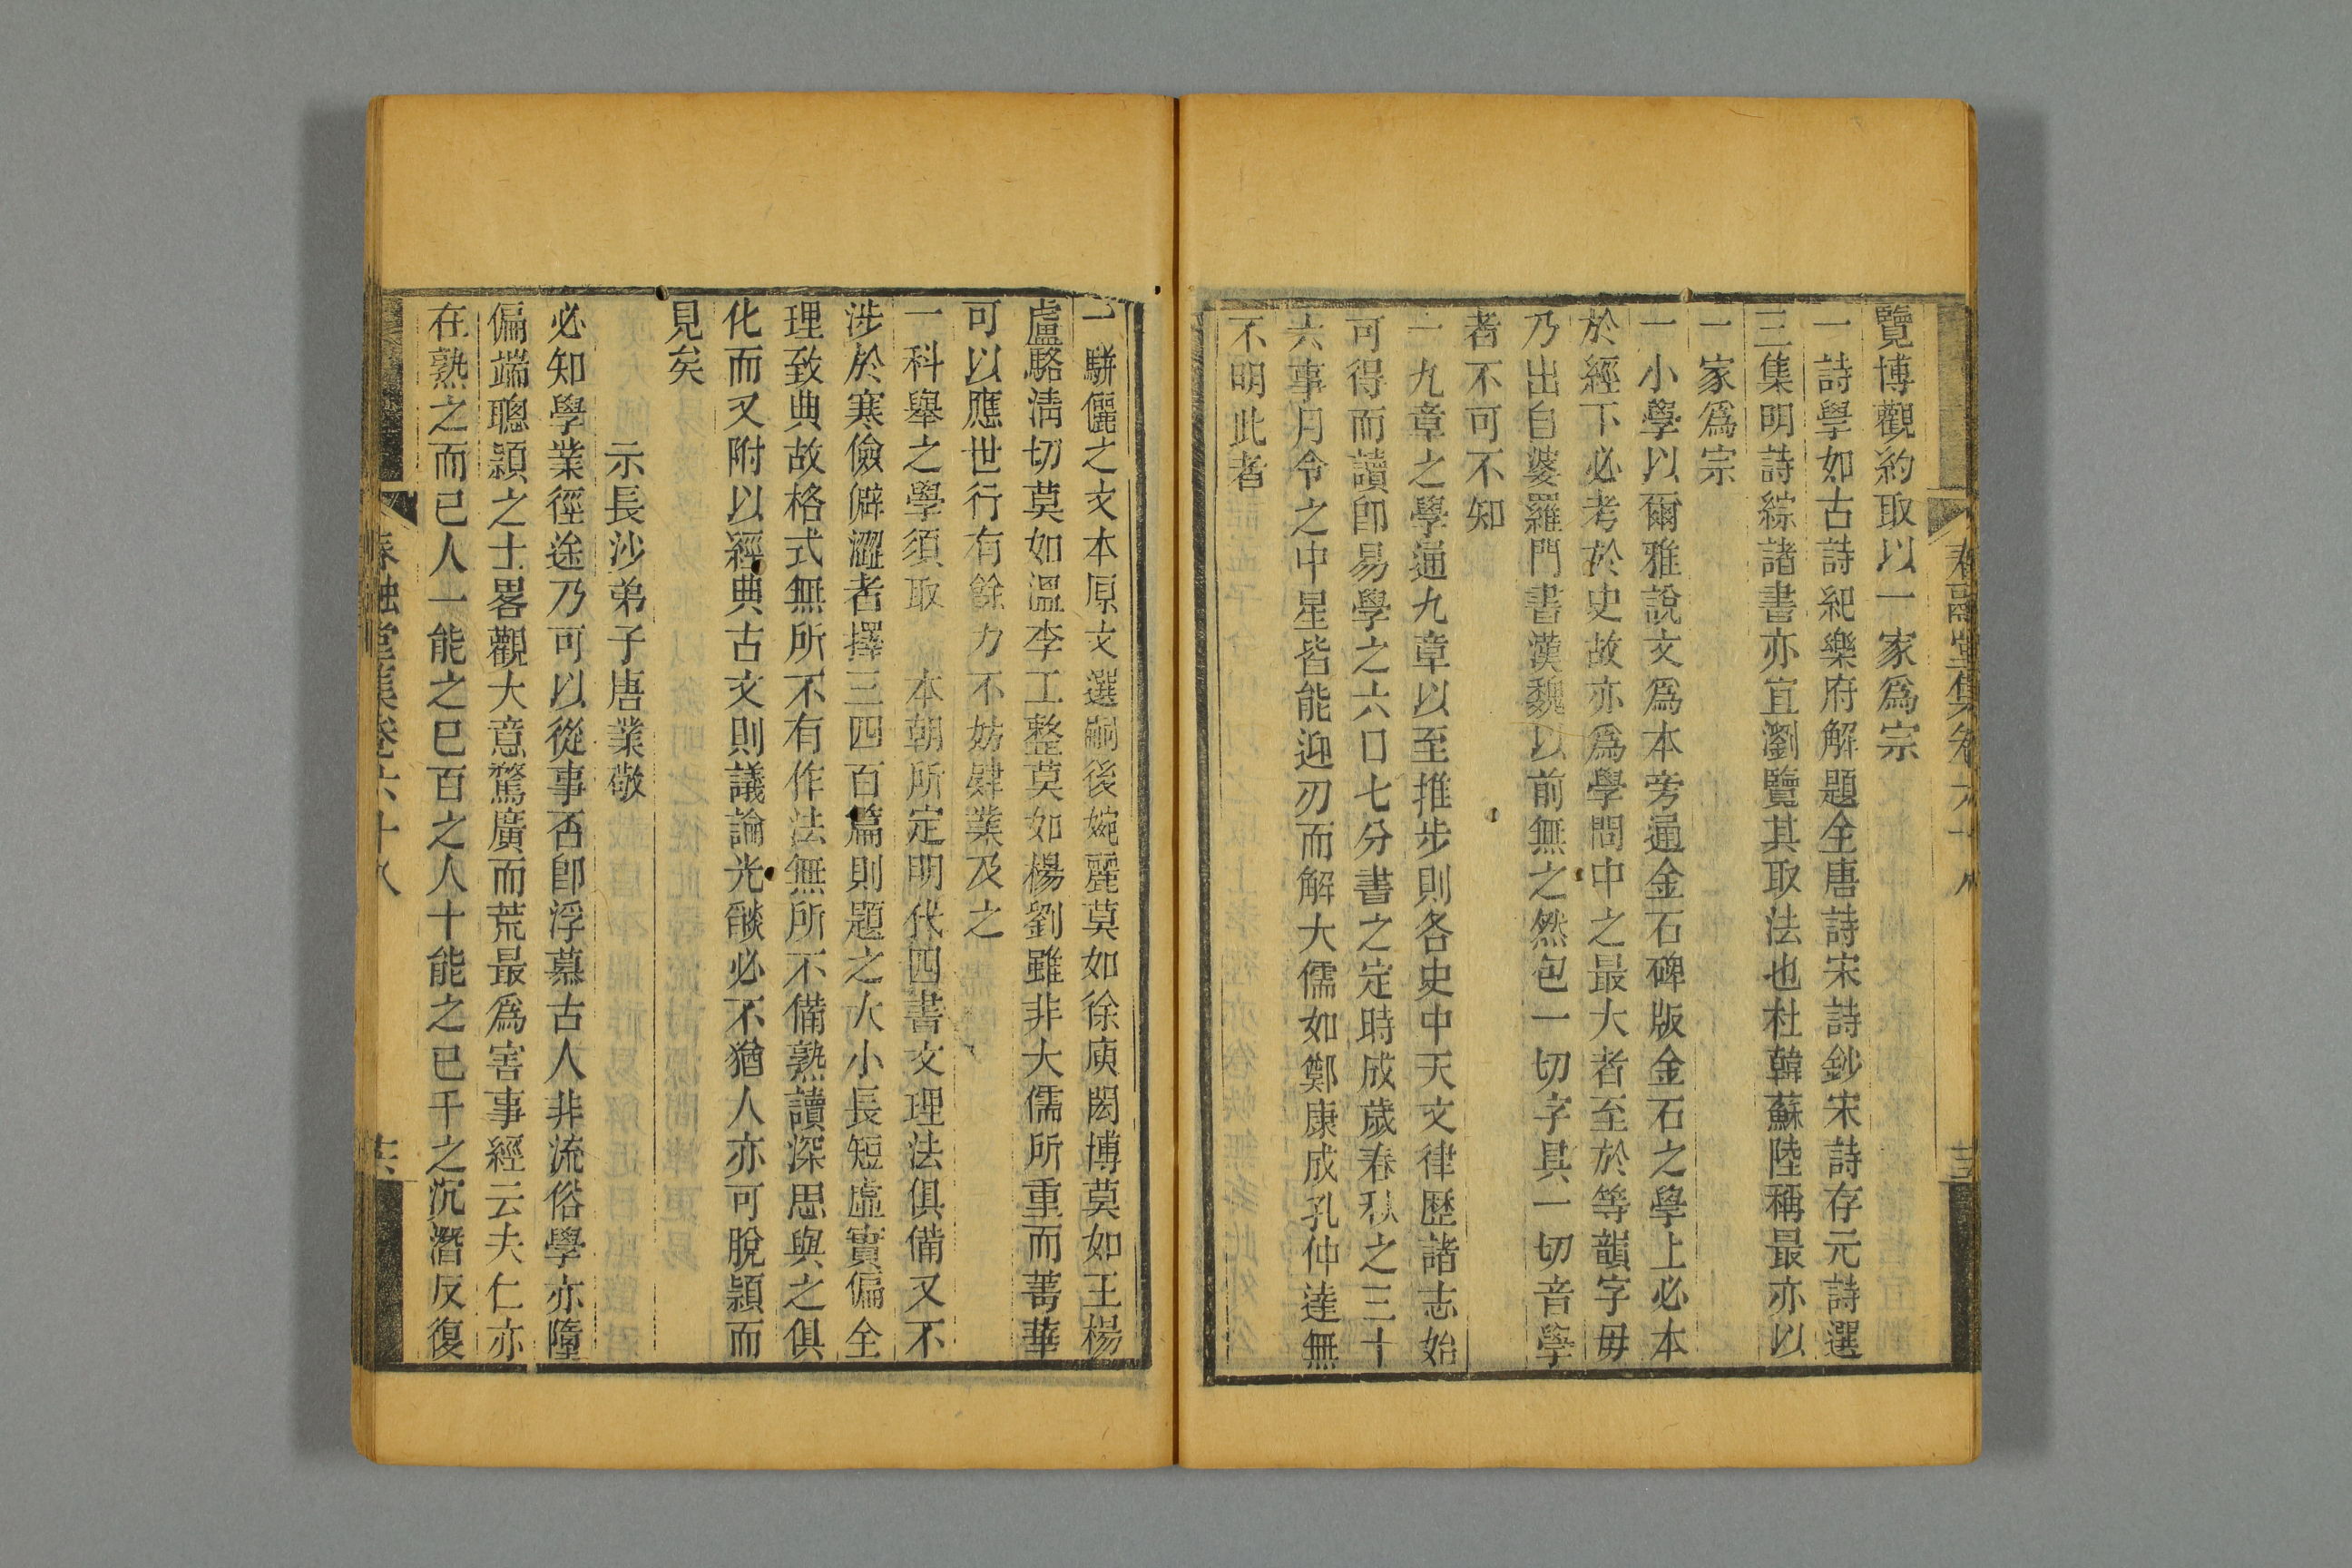 覽博觀約取以一家爲宗
一詩學如古詩紀樂府解題全唐詩宋詩鈔宋詩存元詩選
三集明詩綜諸書亦宜瀏覽其取法也杜韓蘇陸稱最亦以
一家爲宗
一小學以爾雅說文爲本旁通金石碑版金石之學上必本
於經下必考於史故亦爲學問中之最大者至於等韻字毋
乃出自婆羅門書漢魏以前無之然包一切字具一切音學
者不可不知
一九章之學通九章以至推步則各史中天文律歷諸志始
可得而讀卽易學之六日七分書之定時成歲春秋之三十
六事月令之中星皆能迎刃而解大儒如鄭康成孔仲達無
不明此者
一駢儷之文本原文選嗣後婉麗莫如徐庾閎博莫如王楊
盧駱淸切莫如溫李工整莫如楊劉雖非大儒所重而菁華
可以應世行有餘力不妨肄業及之
一科舉之學須取 本朝所定明代四書文理法俱備又不
涉於寒儉僻澀者擇三四百篇則題之大小長短虛實偏全
理致典故格式無所不有作法無所不備熟讀深思與之俱
化而又附以經典古文則議論光燄必不猶人亦可脫穎而
見矣
示長沙弟子唐業敬
必知學業徑途乃可以從事否卽浮慕古人非流俗學亦隨
偏端聰穎之士畧觀大意騖廣而荒最爲害事經云夫仁亦
在熟之而已人一能之已百之人十能之已千之沉潛反復
春融堂集卷六十八